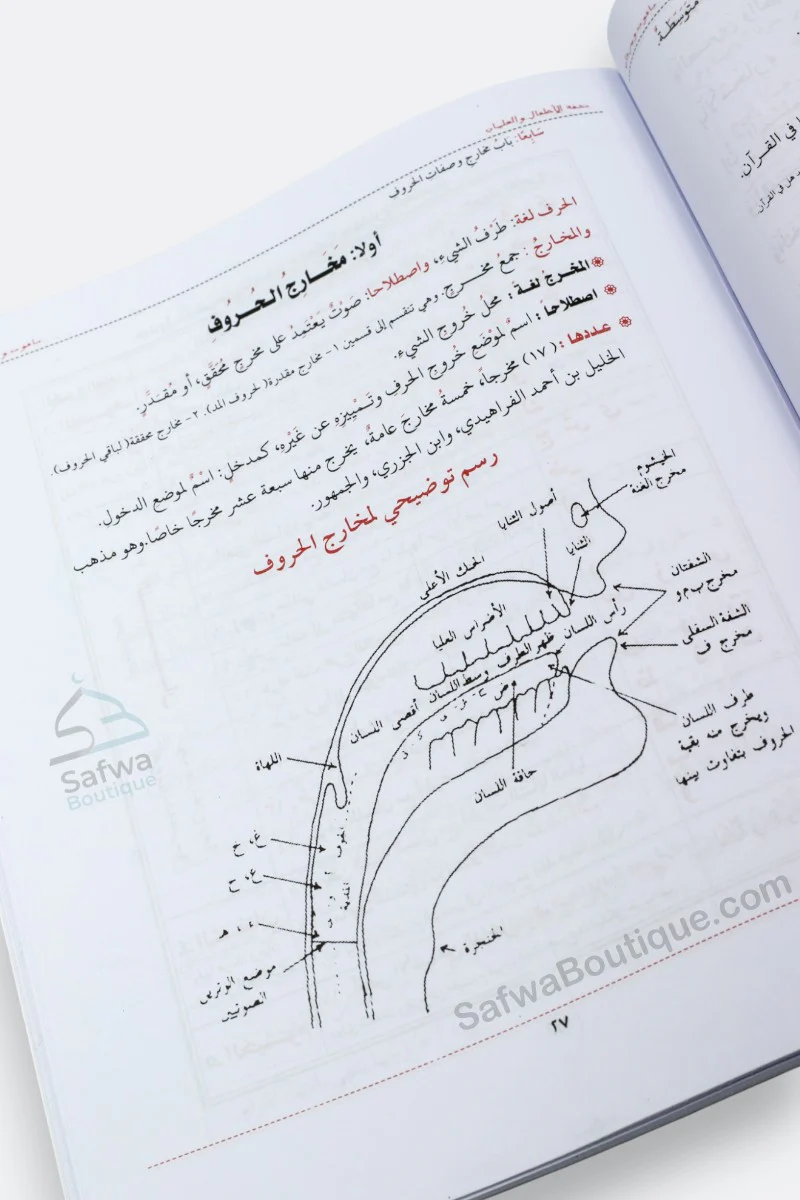 تحفة الأطفال والغلمان
سَابِعًا: بَابُ مخارج وصفات الحروف
أولا: مَخَارِجُ الحُرُوفِ
الحرف لغة: طَرْفُ الشيءِ، واصطلاحا: صَوْتٌ يَعْتَمِدُ على مخرج مُحَقَّق، أو مُقَدَّرٍ.
والمخارجُ: جمعُ مخرج. وهي تنقسم إلى قسمين ١- مخارج مقدرة (لحروف المد). ٢- مخارج محققة (لباقي الحروف).
المخرجُ لغةً: محلُ خُروجِ الشيءِ.
اصطلاحا: اسمٌ لموْضَعِ خُروجِ الحرفِ وتَمْييزِهِ عن غَيْرِهِ، كمدخلٍ: اسْمٌ لموضع الدخول.
عددها: (١٧) مخرجاً، خمسةُ مخارجَ عامةٌ، يخرج منها سبعة عشر مخرجًا خاصًا. وهو مذهب
الخليل بن أحمد الفراهيدي، وابن الجزري، والجمهور.
رسم توضيحي لمخارج الحروف
الخيشوم
مخرج الغنة
أصول الثنايا
الثنايا
الحنك الأعلى
الشفتان
مخرج ب م و
الأضراس العليا
الشفة السفلى
مخرج ف
رأس اللسان
ظهر الطرف
وسط اللسان
أقصى اللسان
طرف اللسان
ويخرج منه بقية
الحروف بتفاوت بينها
حافة اللسان
اللهاة
الجوف
غ، خ
ع، ح
ء، هـ
موضع الوترين
الصوتيين
الحنجرة
٢٧
متوسِّطَةٌ.
في القرآن.
Safwa
Boutique
SafwaBoutique.com